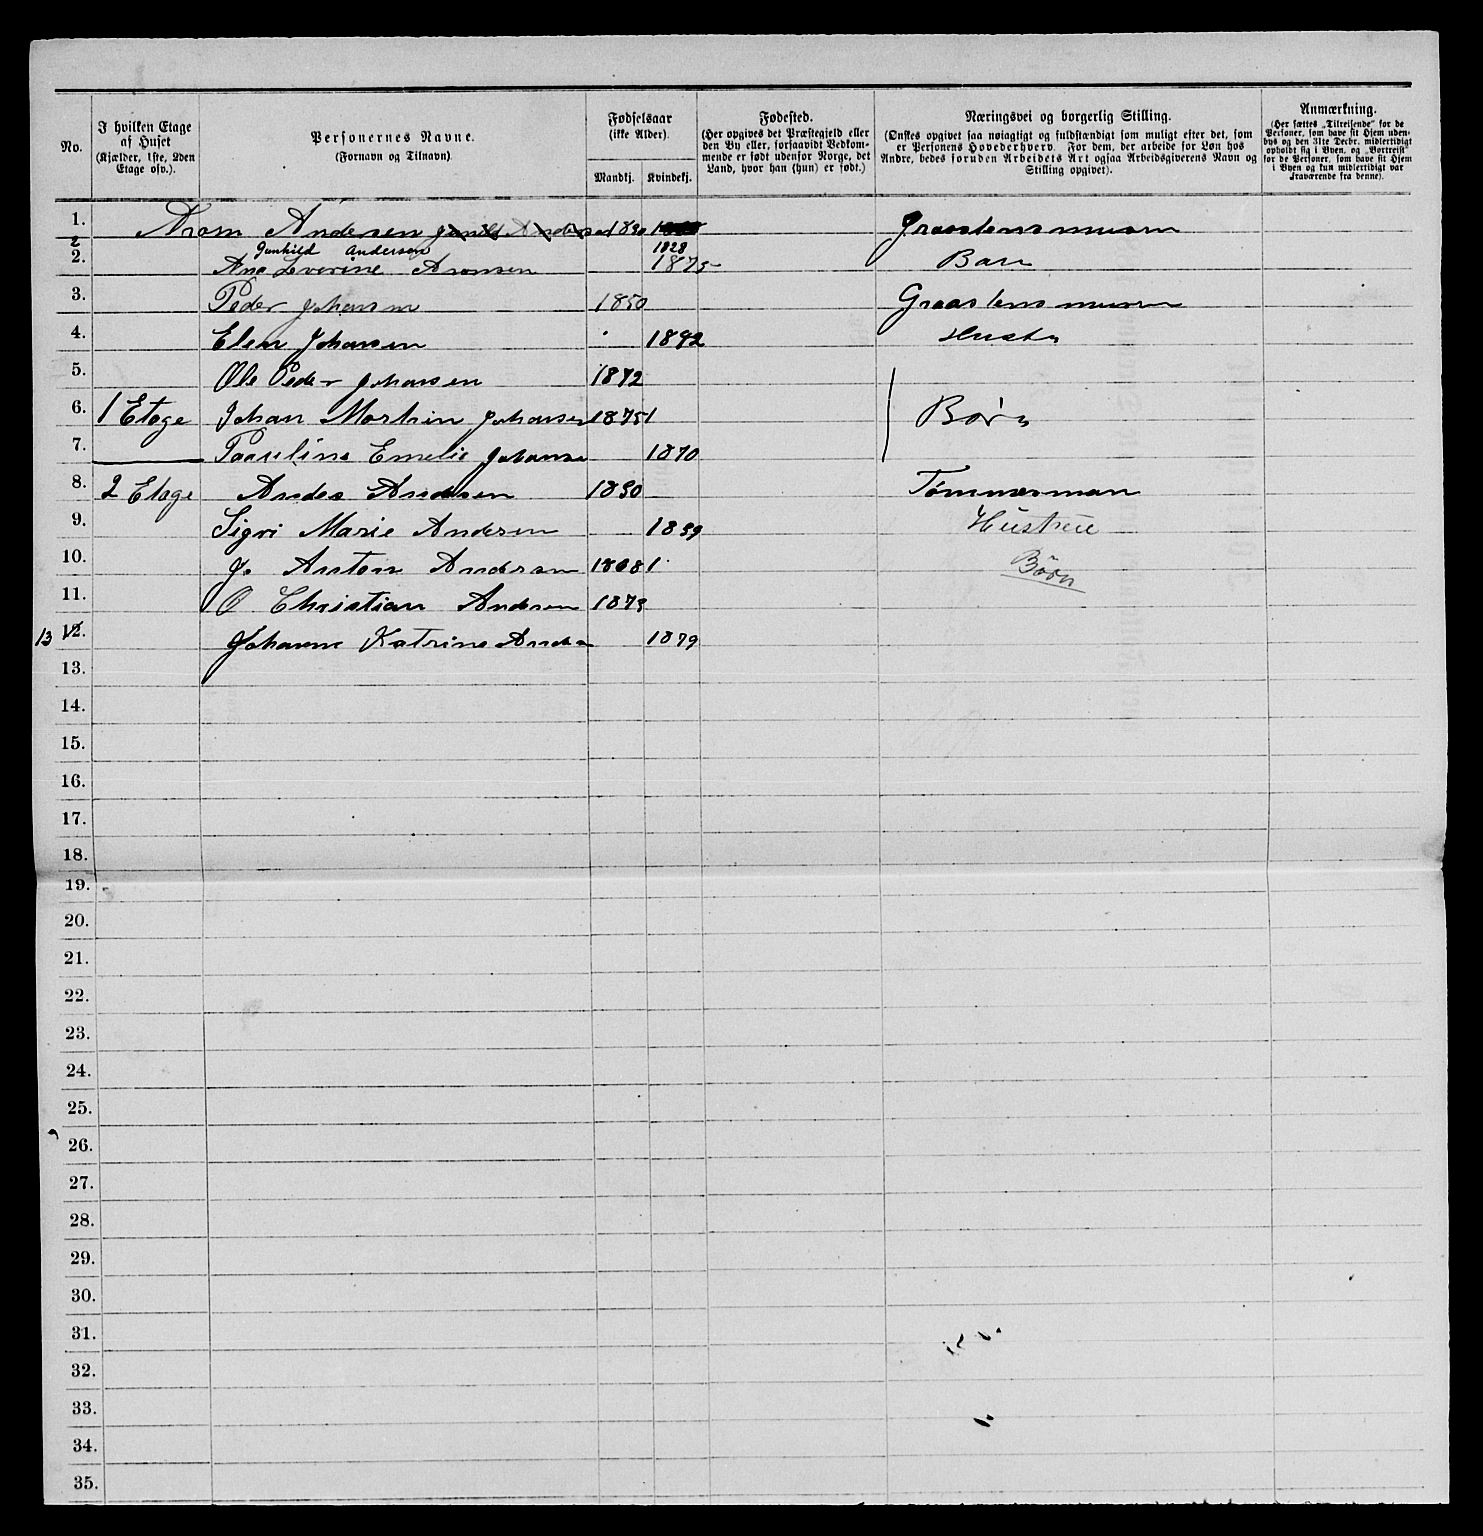 No.
I hvilken Etage af Huset (Kjælder, 1ste, 2den Etage osv.).
Personernes Navne. (Fornavn og Tilnavn)
Fødselsaar (ikke Alder).
Mandkj. Kvindekj.
Fødested. (Her opgives det Præstegjeld eller den By eller, forsaavidt Vedkommende er født udenfor Norge, det Land, hvor han (hun) er født.)
Næringsvei og borgerlig Stilling. (Ønskes opgivet saa nøiagtigt og fuldstændigt som muligt efter det, som er Personens Hovederhverv. For dem, der arbeide for Løn hos Andre, bedes foruden Arbeidets Art ogsaa Arbeidsgiverens Navn og Stilling opgivet).
Anmærkning. (Her sættes „Tilreisende" for de Personer, som have sit Hjem udenbys og den 31te Decbr. midlertidigt opholdt sig i Byen, og „Bortreist" for de Personer, som have sit Hjem i Byen og kun midlertidigt var fraværende fra denne).
1. Arom Andersen Gunild Andersen 1830 Graastensmuren
2 Gunhild Andersen 1828
2. Ane Severine Aromsen 1875 Barn
3. Peder Johansen 1850 Graastensmuren
4. Elen Johansen 1842 Hustr
5. Ole Peder Johansen 1872
6. 1 Etage Johan Marthin Johansen 1875 1 Børn
7. Pauline Emelie Johanse 1870
8. 2 Etage Andes Andersen 1830 Tømmerman
9. Sigri Marie Andersen 1839 Hustrue
10. J. Anton Andersen 1868 1 Børn
11. O. Christian Andersen 1873
13 12. Johanne Katrine Anders 1879
13.
14.
15.
16.
17.
18.
19.
20.
21.
22.
23.
24.
25.
26.
27.
28.
29.
30.
31.
32.
33.
34.
35.